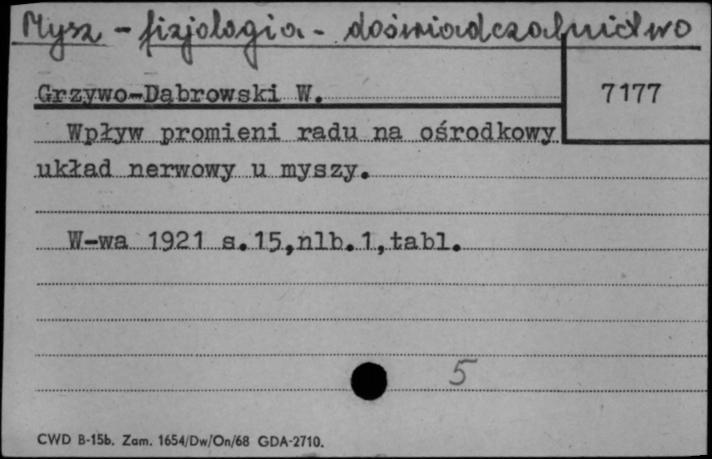 Mysz - fizjologia - doświadczalnictwo
Grzywo-Dąbrowski W.
7177
Wpływ promieni radu na ośrodkowy
układ nerwowy u myszy.
W-wa 1921 s.15,nlb.1,tabl.
5
CWD B-15b. Zam. 1654/Dw/On/68 GDA-2710.